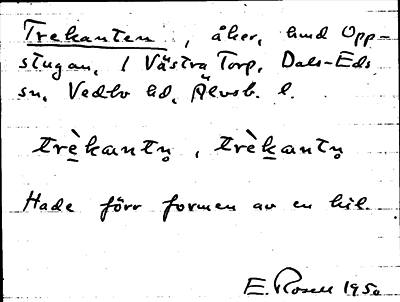 Trekanten, åker, hmd Opp-
stugan, 1 Västra Torp, Dals-Eds
sn, Vedbo hd, Älvsb. l.
trèkantn̥, trèkantn̥
Hade förr formen av en kil.
E. Rosell 1950